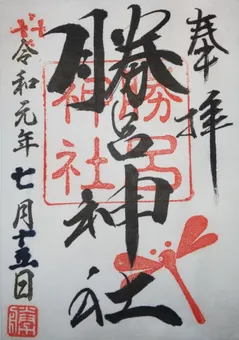 奉拝
勝呂神社
勝呂
神社
令和元年七月十五日